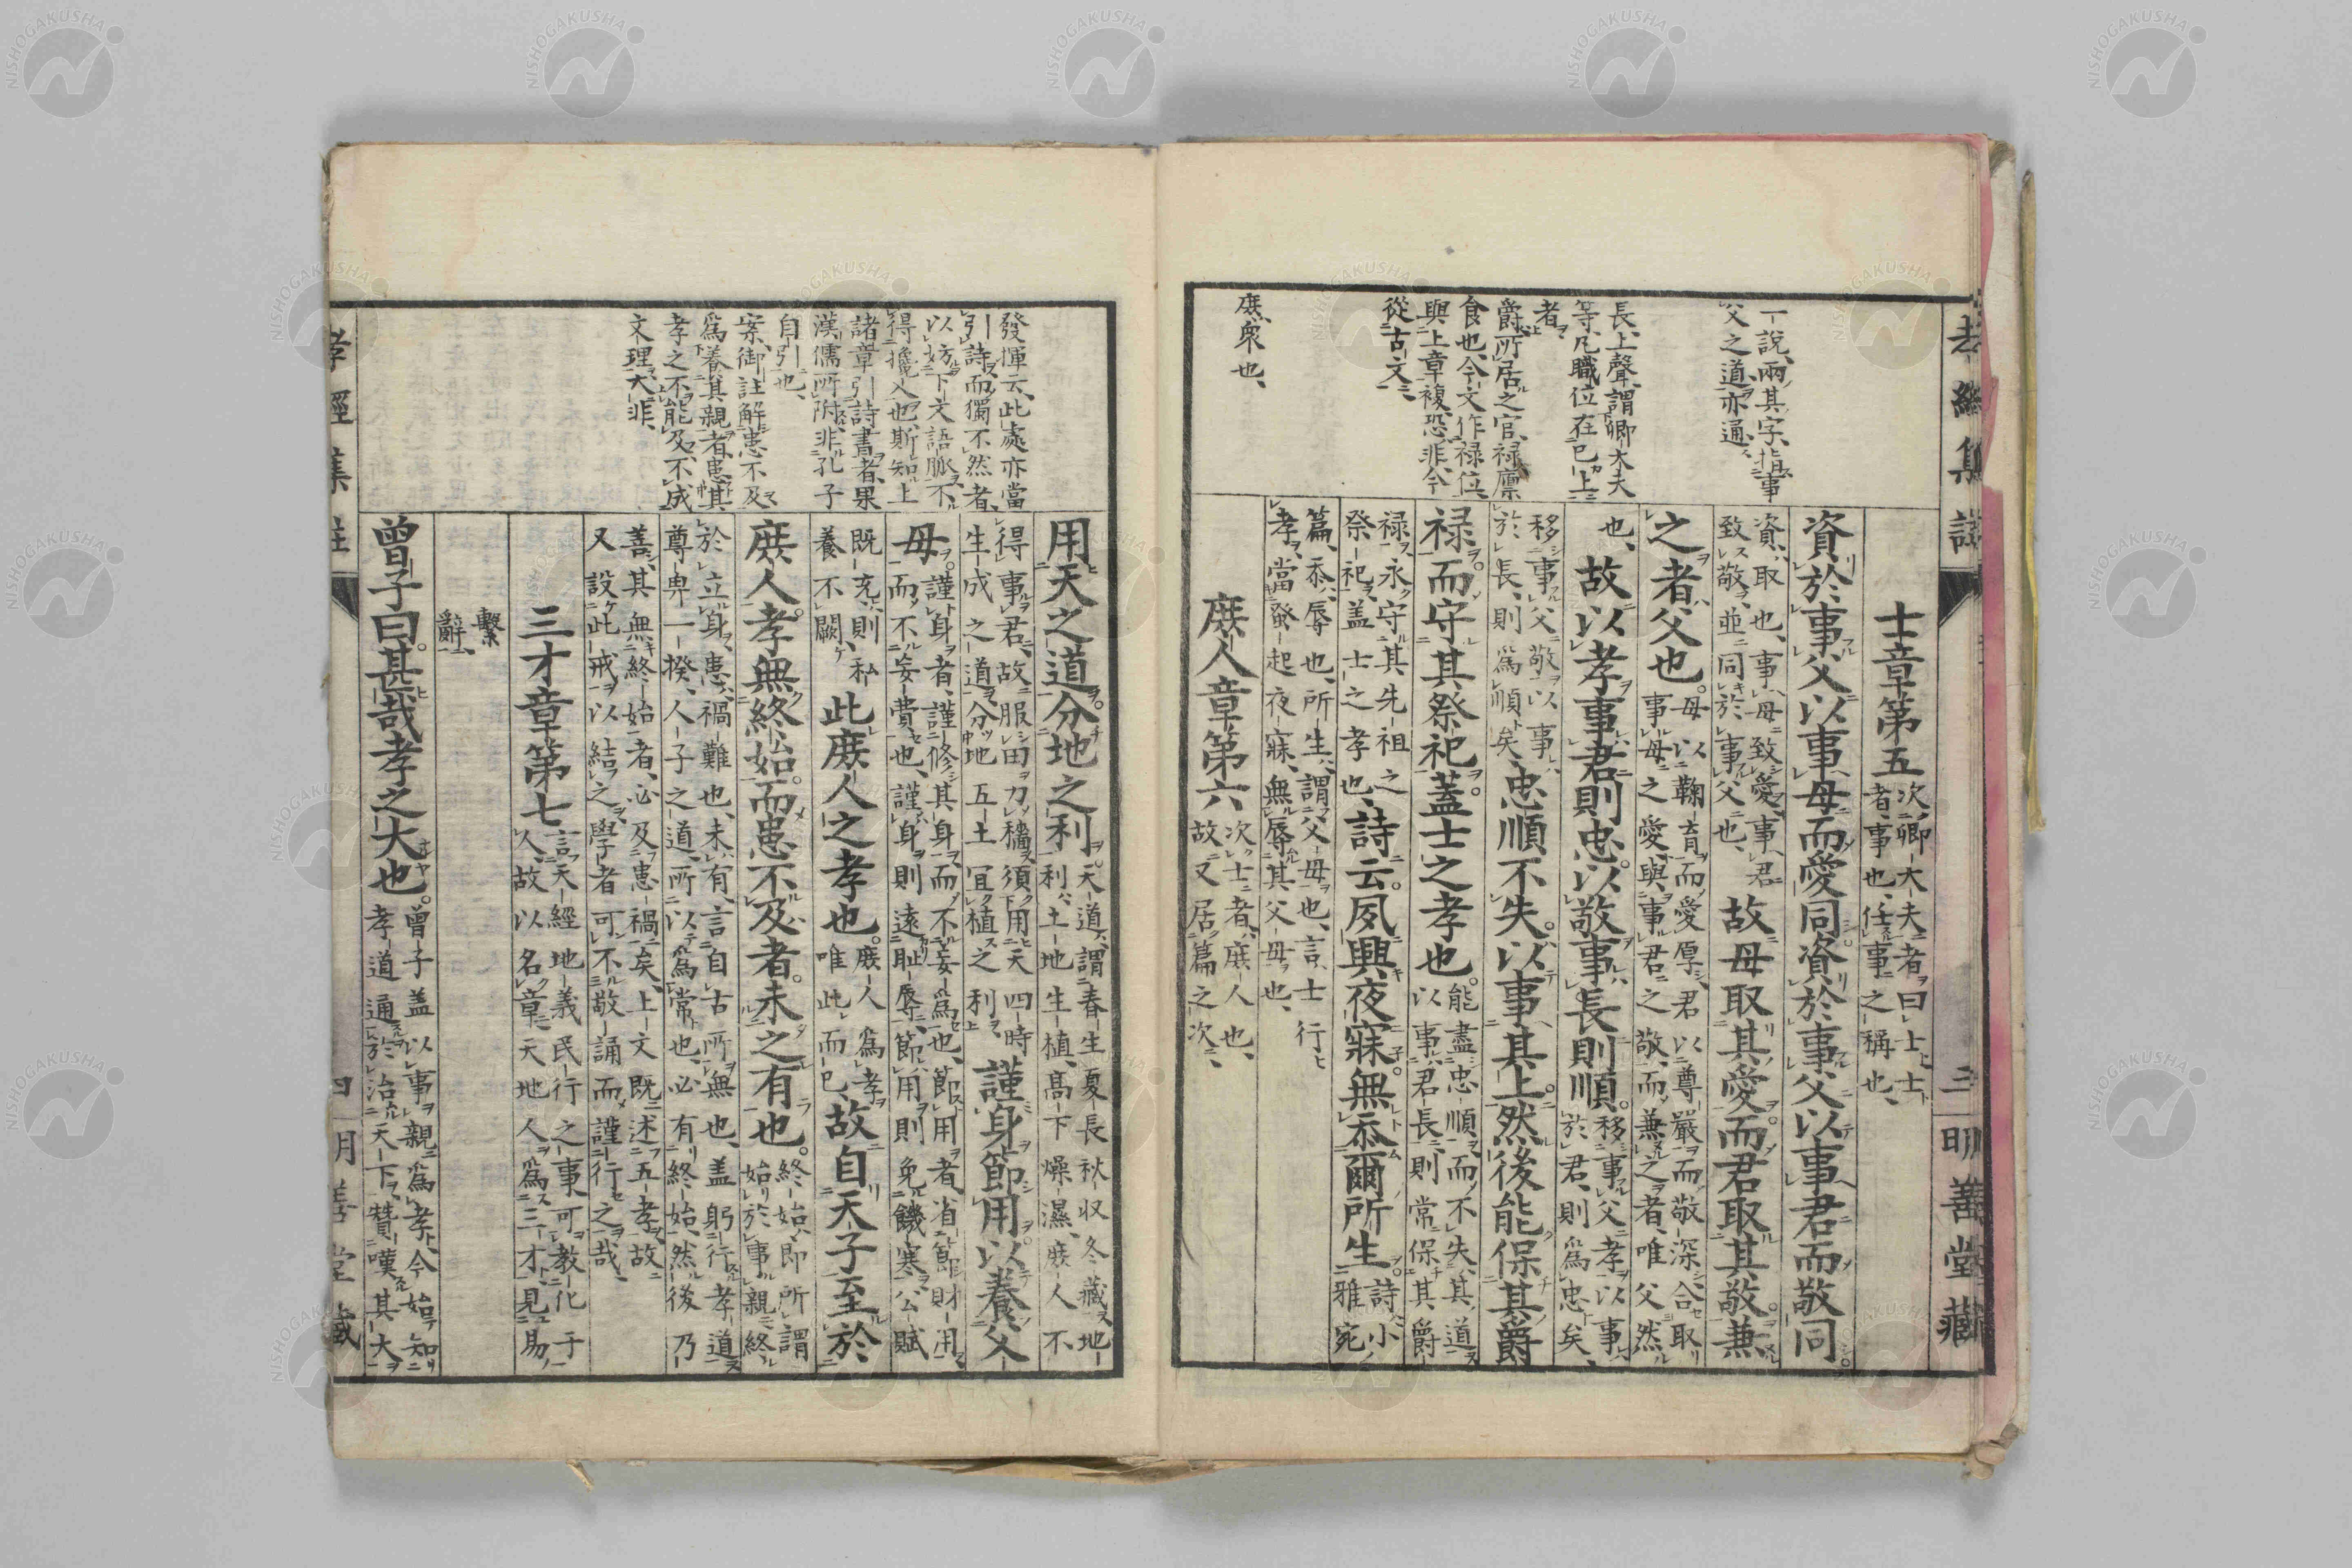 孝經集註
三
明善堂藏
一說、兩其字、指事
父之道、亦通、
長、上聲、謂卿大夫
等、凡職位在己上
者
爵、所居之官、祿廩
食也、今文作祿位、
與上章複、恐非、今
從古文、
庶、衆也、
士章第五
次卿大夫者曰士、士
者、事也、任事之稱也、
資於事父以事母而愛同資於事父以事君而敬同
資、取也、事母致愛、事君
致敬、並同於事父也、
故母取其愛而君取其敬兼
之者父也。
母以鞠育而愛厚、君以尊嚴而敬深、合取
事母之愛、與事君之敬、而兼之者、唯父然
也、
故以孝事君則忠。以敬事長則順。
移事父孝以事
於君、則爲忠矣、
移事父敬以事
於長、則爲順矣、
忠順不失。以事其上。然後能保其爵
祿。而守其祭祀。蓋士之孝也。
能盡忠順、而不失其道
以事君長、則常保其爵
祿、永守其先祖之
祭祀、盖士之孝也、
詩云。夙興夜寐。無忝爾所生。
詩小
雅宛
篇、忝、辱也、所生、謂父母也、言士行
孝、當蚤起夜寐、無辱其父母也、
庶人章第六
次士者、庶人也、
故又居篇之次、
發揮云、此處亦當
引詩、而獨不然者、
以妨下文語脈、不
得攙入也、斯知上
諸章引詩書者、果
漢儒所附、非孔子
自引也、
案、御註解患不及
爲養其親者、患其
孝之不能及、不成
文理、大非、
用天之道。分地之利。
天道、謂春生夏長秋收冬藏、地
利、土地生植、高下燥濕、庶人不
得事君、故服田力穡、須用天四時
生成之道、分地五土冝植之利、
謹身節用。以養父
母。
謹身者、謹修其身、而不妄爲也、節用者、省節財用、
而不妄費也、謹身則遠恥辱、節用則免饑寒、公賦
既充、則私
養不闕、
此庶人之孝也。
庶人爲孝
唯此而已、
故自天子至於
庶人。孝無終始。而患不及者。未之有也。
終始、即所謂
始於事親、終
於立身、患、禍難也、未有、言自古所無也、盖躬行孝道、
尊卑一揆、人子之道、所以爲常也、必有終始、然後乃
善、其無終始者、必及患禍矣、上文既述五孝、故
又設此戒、以結之、學者可不敬誦而謹行之哉、
三才章第七
言天經地義民行之事、可教化于
人、故以名章、天地人爲三才、見易
繫
辭、
曾子曰。甚哉孝之大也。
曾子盖以事親爲孝、今始知
孝道通於治天下、贊嘆其大
孝經集註
四
明善堂藏